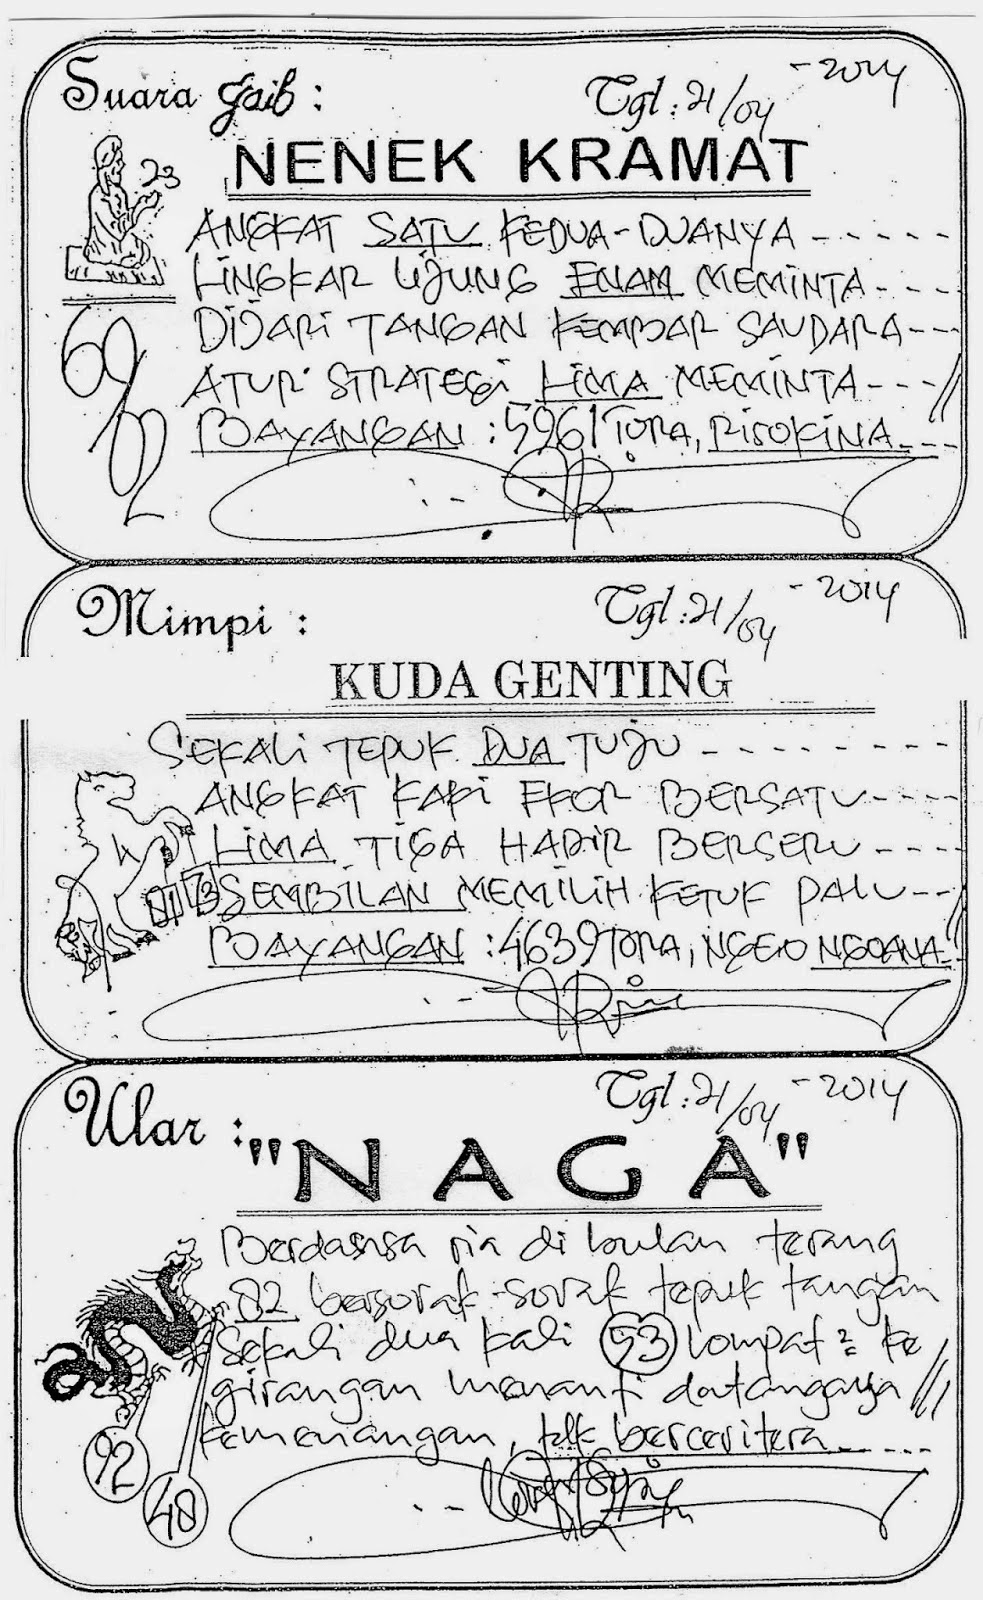 Suara Gaib :
Tgl : 21/04 - 2014
NENEK KRAMAT
23
ANGKAT SATU KEDUA-DUANYA ------
LINGKAR UJUNG ENAM MEMINTA ----
DIJARI TANGAN KEMBAR SAUDARA ---
69
ATUR STRATEGI LIMA MEMINTA ---//
02
BAYANGAN : 5961 TORA, RISOKINA ---
Mimpi :
Tgl : 21/04 - 2014
KUDA GENTING
SEKALI TEPUK DUA TUJU --------
ANGKAT KAKI EKOR BERSATU ----
LIMA TIGA HADIR BERSERU ----
91 73
SEMBILAN MEMILIH KETUK PALU ---
BAYANGAN : 4639 TORA, NGEO NGOANA //
Ular :
Tgl : 21/04 - 2014
"NAGA"
Berdansa ria di bulan terang
82 bersorak-sorak tepuk tangan
Sekali dua kali 53 lompat² ke
girangan menanti datangnya ///
kemenangan, tdk berceritera -----
92
48